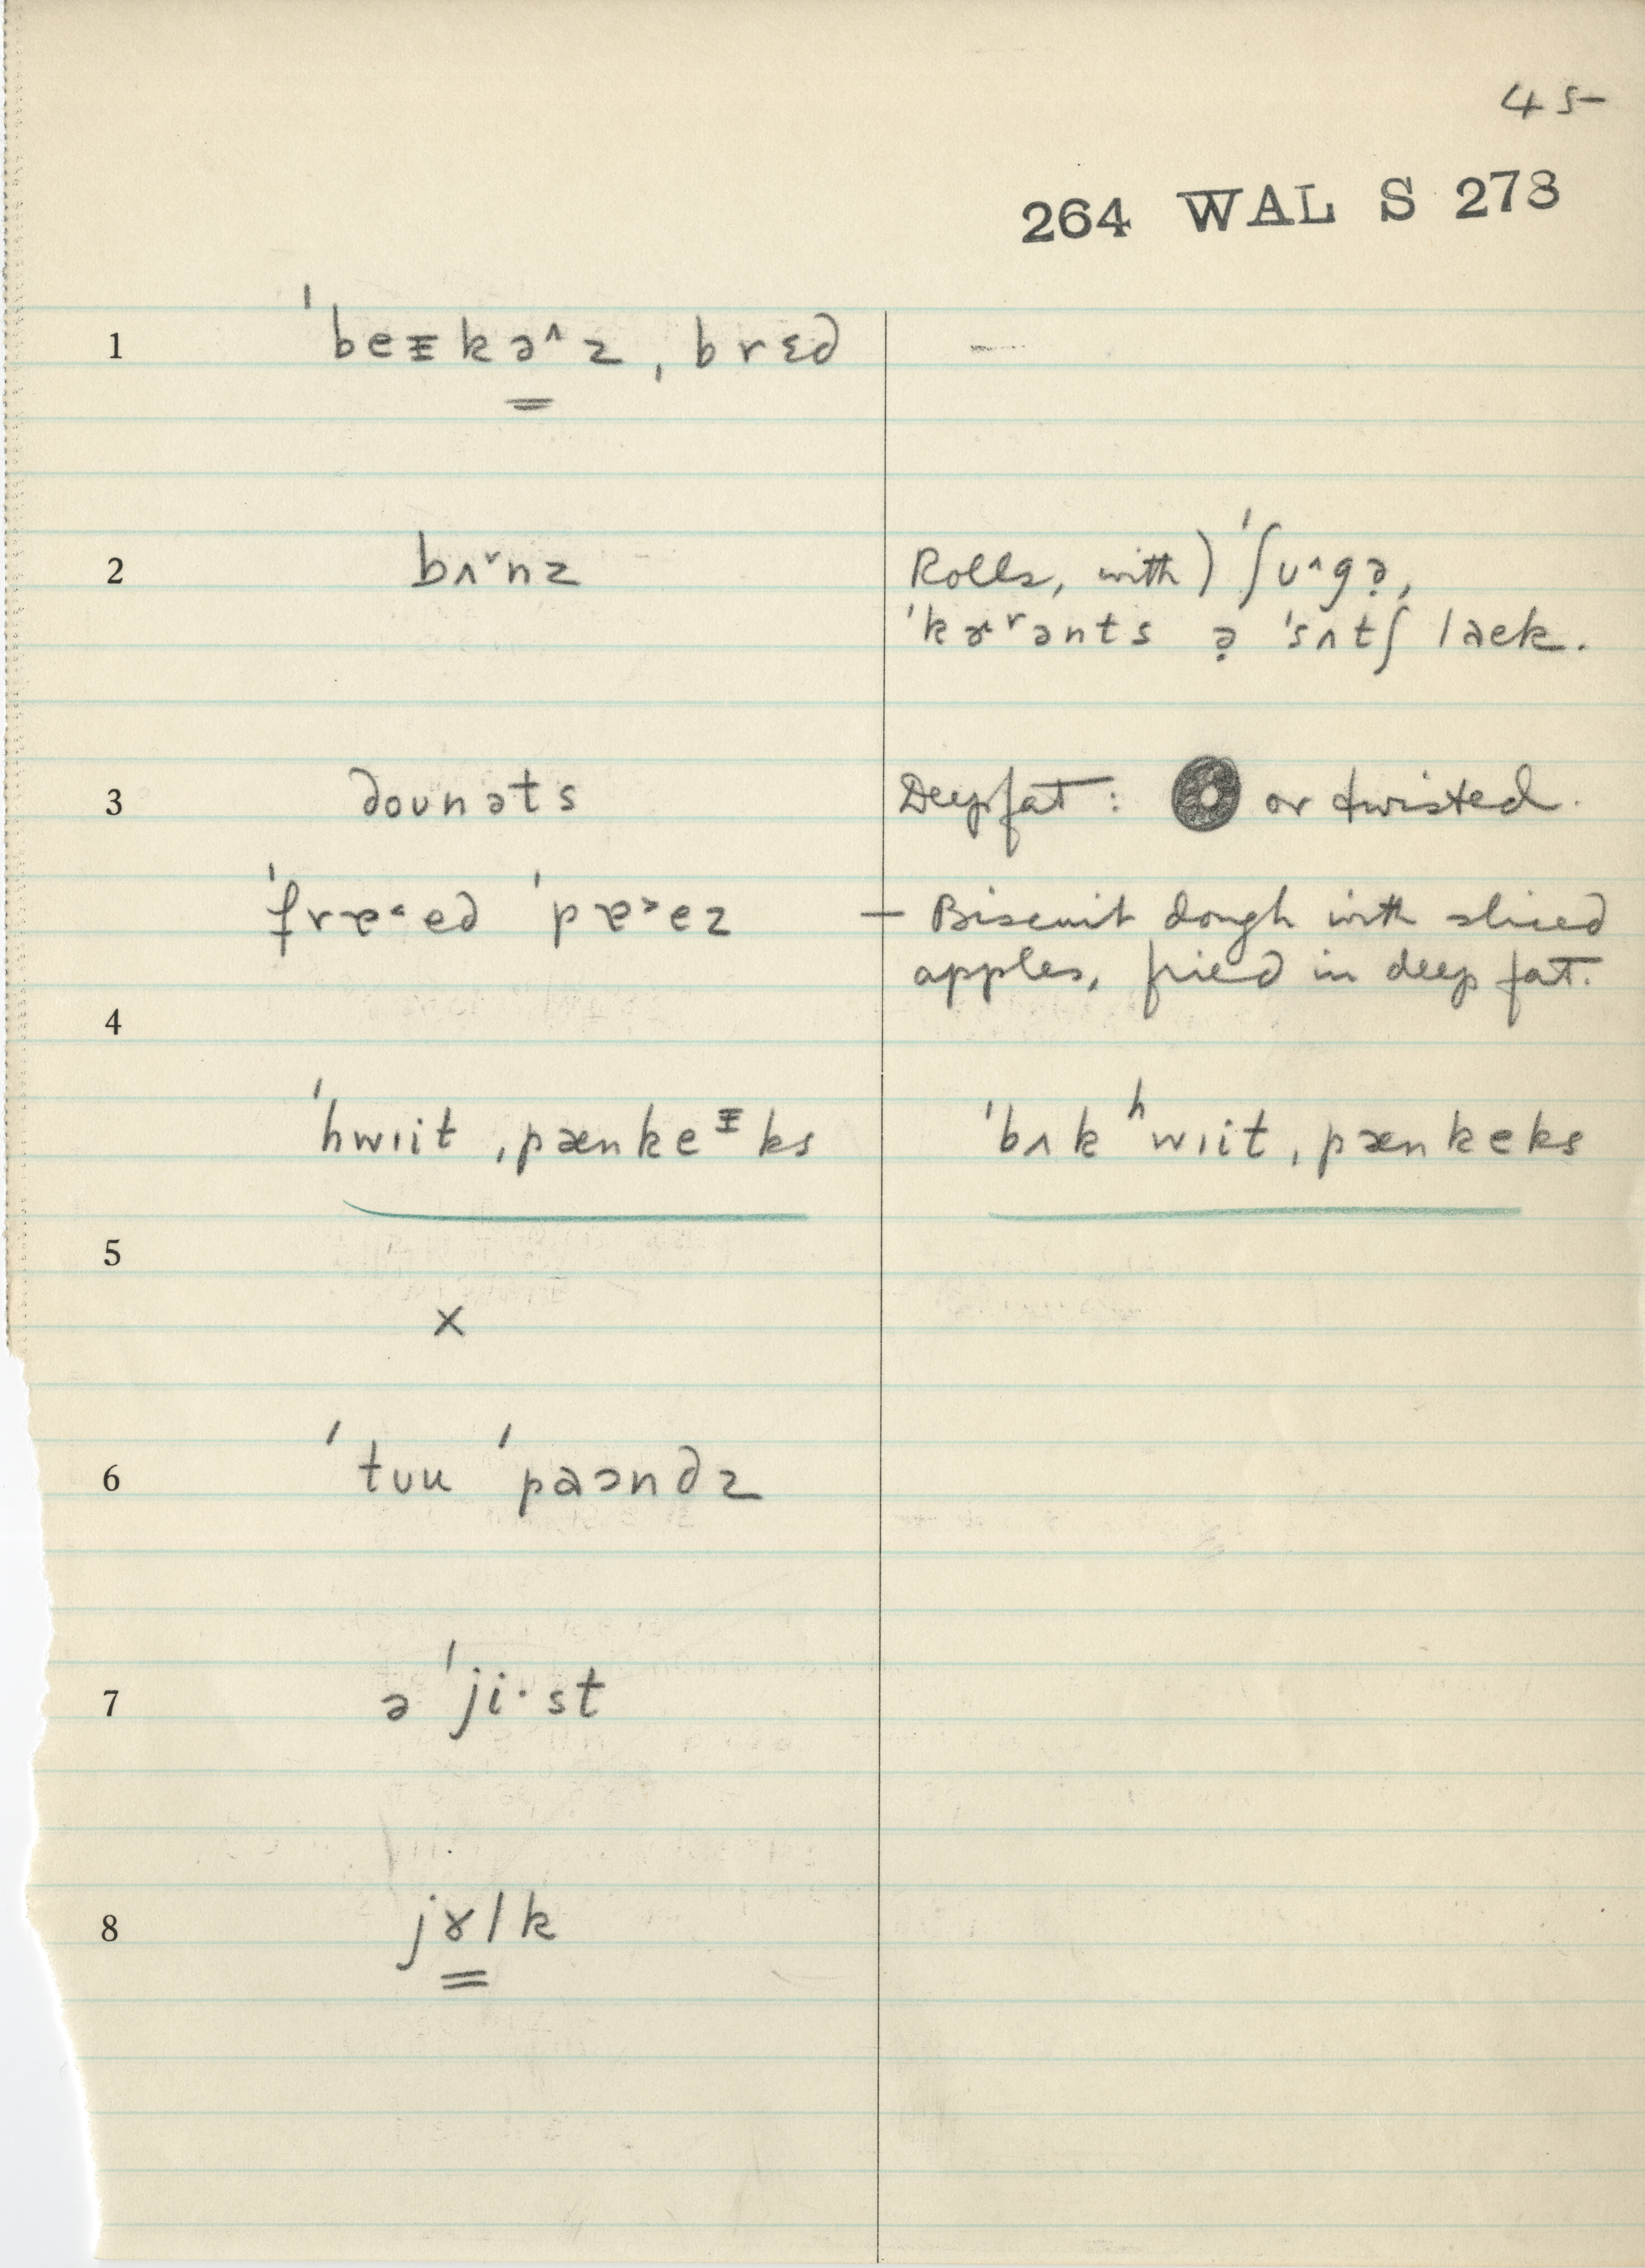 45
264 WAL S 273
1 ˈbeᵻkə^z ˌbrɛd —
2 bʌˇnz Rolls, with) ˈʃʊ^gə̣,
ˈkɚʳənts ə̣ ˈsʌtʃ laek.
3 doʊnəts Deep fat: or twisted.
ˈfrɐ˂ed ˈpɐ˃ez — Biscuit dough with sliced
apples, fried in deep fat.
4
ˈhwɪit ˌpænkeᵻks ˈbʌkʰwɪit ˌpænkeks
5
x
6 ˈtʊu ˈpaɔndz
7 ə ˈji·st
8 jɤlk